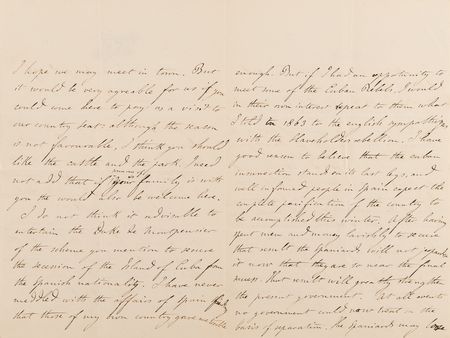 I hope we may meet in town. But
it would be very agreeable for us if you
could come here to pay us a visit to
our country seat: although the season
is not favourable, I think you should
like the castle and the park. I need
not add that if your family is with
you the would also be welcome here.
I do not think it advisable to
entertain the Duke de Montpensier
of the scheme you mention to secure
the secession of the Island of Cuba from
the Spanish nationality. I have never
meddled with the affairs of Spain
that those of my own country gave me
enough. But if I had an opportunity to
meet some of the Cuban Rebels, I would
in their own interest repeat to them what
I told in 1863 to the english sympathisers
with the Slaveholders rebellion. I have
good reason to believe that the cuban
insurrection stands on its last legs, and
well informed people in Spain expect the
complete pacification of the country to
be accomplished this winter. After having
spent men and money lavishly to secure
that result the Spaniards will not
it now that they are so near the final
success. That result will greatly strengthen
the present government. At all events
no government could now treat on the
basis of separation. The Spaniards may lose